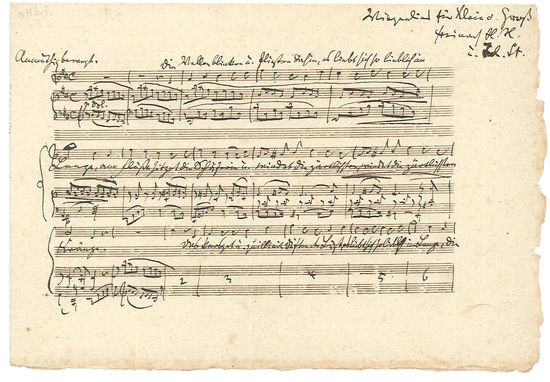 Wiegenlied für Klein u. Groß
frei nach H. H.
u. St.
Anmuthig bewegt.
Die Wellen blinken u. fließen dahin, es liebt sich so lieblich im
Lenze, am Flusse sitzt die Schäferin u. windet die zärtlichsten, windet die zärtlichsten
Kränze. Das knospet u. quillt liebt sich so lieblich im Lenze, die
2 3 4 5 6